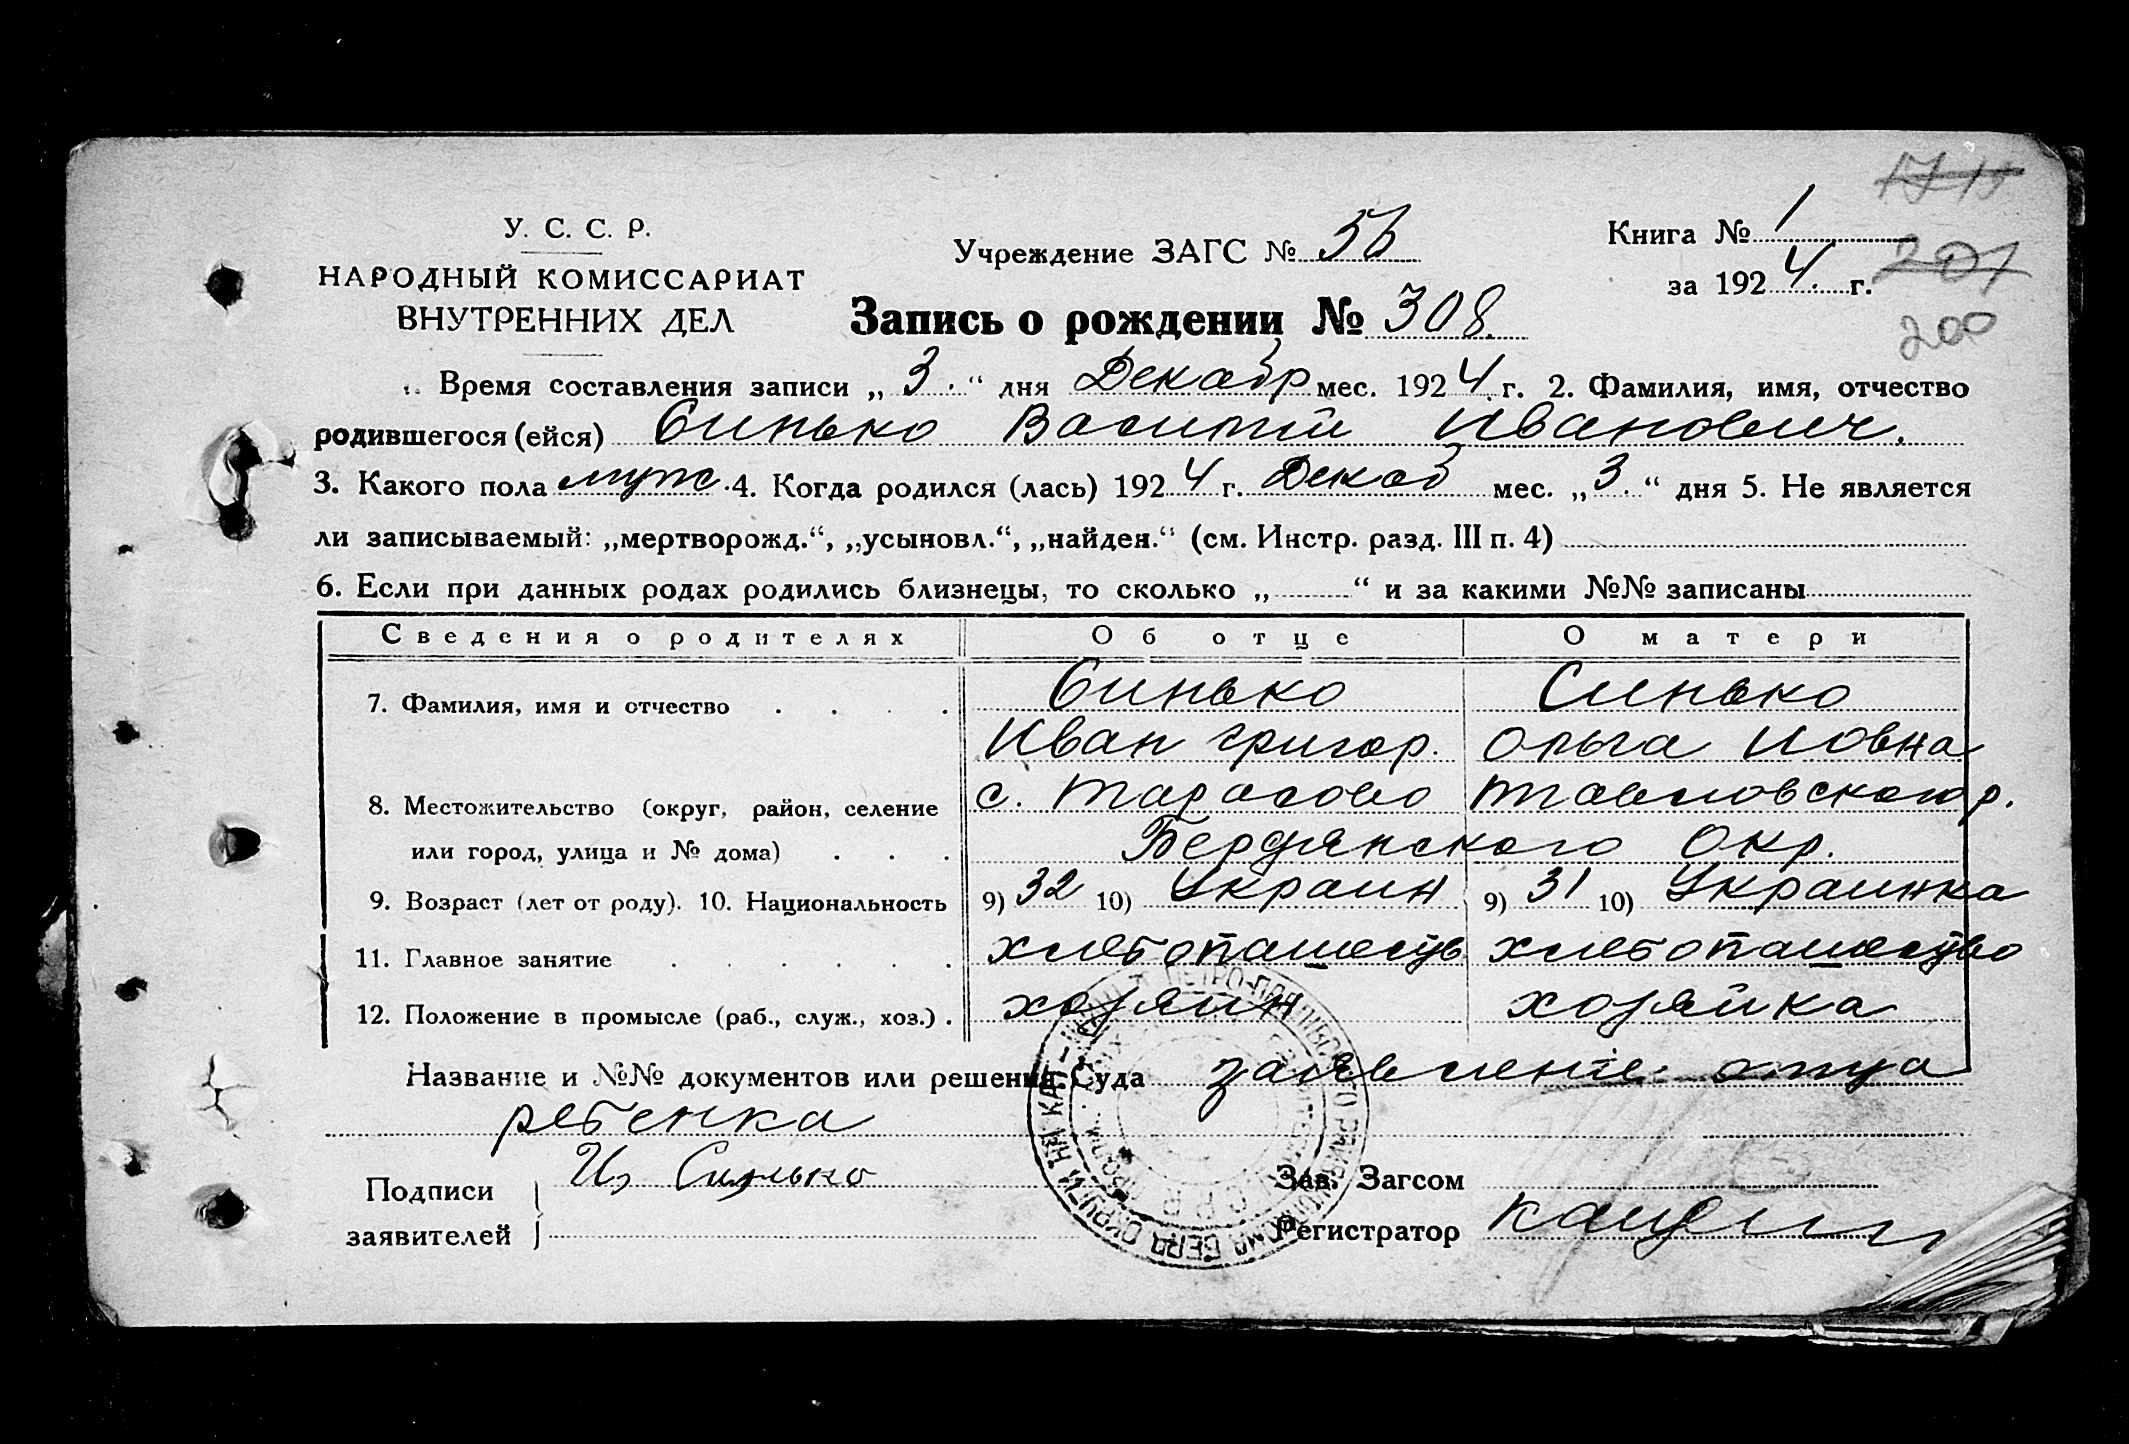 У. С. С. Р.
НАРОДНЫЙ КОМИССАРИАТ
ВНУТРЕННИХ ДЕЛ
Учреждение ЗАГС № 56
Книга № 1
за 1924 г.
201
200
Запись о рождении № 308.
Время составления записи „ 3 . “ дня Декабр мес. 1924 г. 2. Фамилия, имя, отчество
родившегося (ейся) Синько Василий Иванович.
3. Какого пола муж. 4. Когда родился (лась) 1924 г. Декаб мес. „ 3. “ дня 5. Не является
ли записываемый: „мертворожд.“, „усыновл.“, „найден.“ (см. Инстр. разд. III п. 4)
6. Если при данных родах родились близнецы, то сколько „ “ и за какими №№ записаны
Сведения о родителях Об отце О матери
7. Фамилия, имя и отчество Синько Синько
Иван Григор. Ольга Иовна
8. Местожительство (округ, район, селение с. Тарасово р.
или город, улица и № дома) Бердянского Окр.
9. Возраст (лет от роду). 10. Национальность 9) 32 10) Украин 9) 31 10) Украинка
11. Главное занятие хлебопашеств хлебопашество
12. Положение в промысле (раб., служ., хоз.) хозяин хозяйка
Название и №№ документов или решения Суда заявление отца
ребенка
Подписи Ив Синько Зав. Загсом
заявителей Регистратор